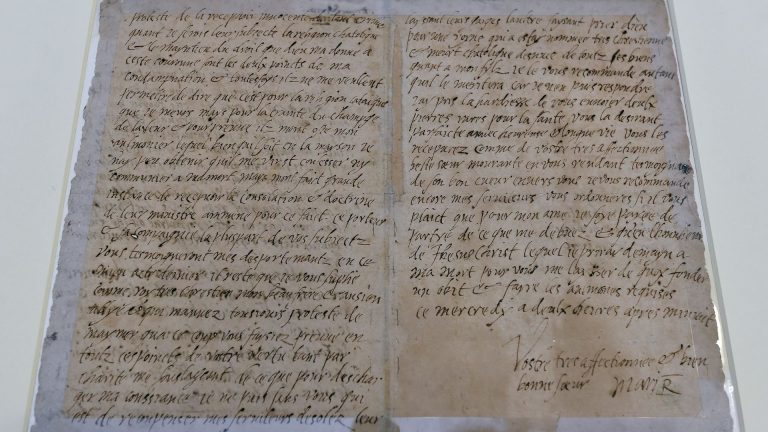 proteste de la recepvoir innocente de tout crime
quant je serois leur subjecte la religion chatolique
& le mayntien du droit que dieu ma donne a
ceste couronne sont les deulx points de ma
condampnation & toutesfoys ilz ne me veulent
permettre de dire que cest pour la religion catolique
que je meurs mays pour la crainte du champge
de la leur & pour preuve ilz mont oste mon
aulmonier lequel bien quil soit en la mayson je
nay peu obtenir quil me vinst confesser ny
communier a ma mort mays mont faict grande
instance de recepvoir la consolation & doctrine
de leur ministre ammene pour ce faict ce porteur
& sa compaignie la pluspart de vos subjectz
vous tesmoigneront mes deportemantz en ce
mien acte dernier il reste que je vous suplie
comme roy tres chrestien mon beau frere & ansien
allye & qui mavvez tousjours proteste de
maymer qua ce coup vous faysiez preuve en
toutz ces points de vostre vertu tant par
charite me soulageant de ce que pour deschar
ger ma conssiance je ne puis sans vous qui
est de recompenser mes serviteurs desolez leur
layssant leurs gaiges laultre faysant prier dieu
pour une royne qui a estay nommee tres chrestienne
& meurt chatolique desnuee de toutz ses biens
quant a mon fylz je le vous recommande autant
quil le meritera car je nen puis respondre
Jay pris la hardiesse de vous envoier deulx
pierres rares pour la sante vous la desirant
parfaicte avec heureuse & longue vie vous les
recepvrez comme de vostre tres affectionnee
belle soeur mourante en vous rendant tesmoygnage
de son bon cueur envers vous je vous recommande
encore mes serviteurs vous ordonneres si il vous
plaict que pour mon ame je soye payee de
partye de ce que me debvez & quen lhonneur
de Jhesus Christ lequel je priray demayn a
ma mort pour vous me laysser de quoy fonder
un obit & fayre les aulmosnes requises
ce mercredy a deulx heures apres minuict
Vostre tres affectionnee & bien
bonne soeur Mari R